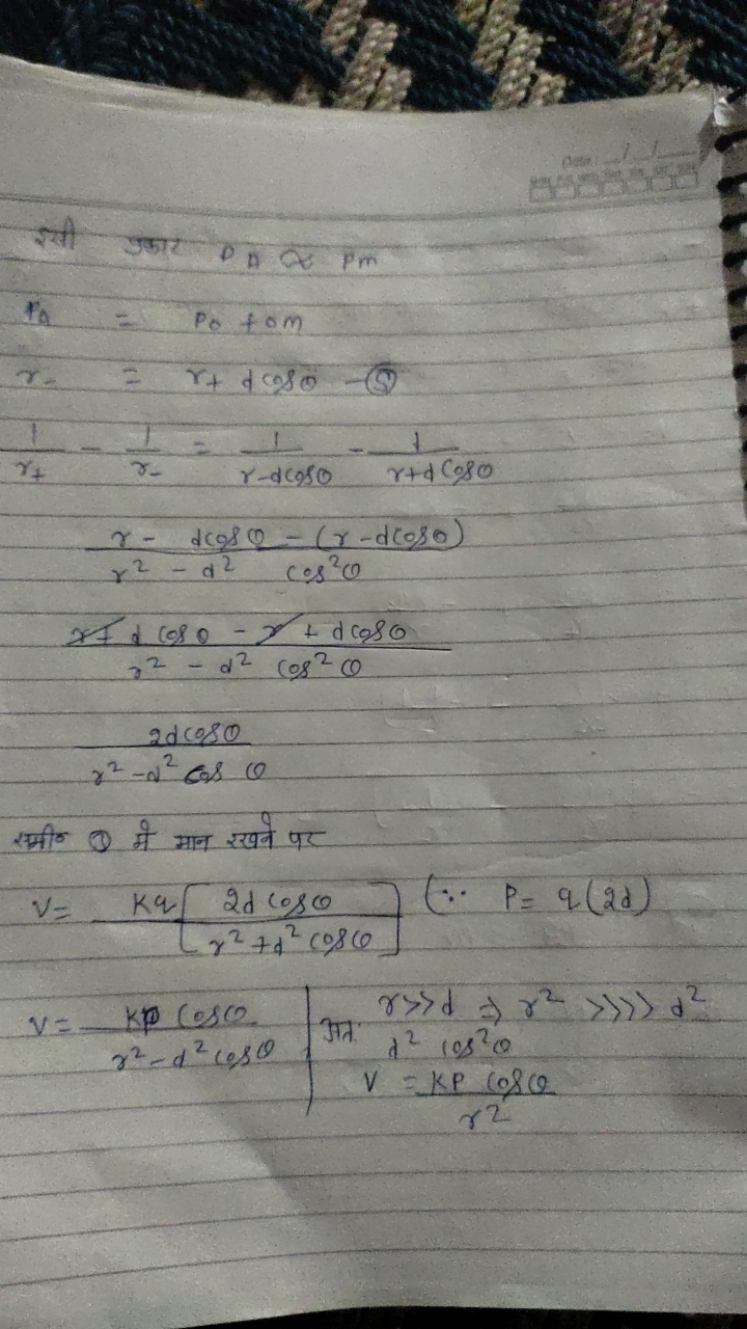 Date: __/__/__
इसी प्रकार PA ≈ Pm
PA = Po + om
r- = r + d cosθ -⑤
1/r+ - 1/r- = 1/(r-dcosθ) - 1/(r+d cosθ)
r - dcosθ - (r - dcosθ)
r² - d² cos²θ
r + d cosθ - r + dcosθ
r² - d² cos²θ
2dcosθ
r² - d² cos θ
समी० ① में मान रखने पर
V = Kq [2d cosθ / r² + d² cosθ] (∵ P = q(2d)
V = KP cosθ / r² - d² cosθ
अतः r>>d ⇒ r² >>>> d²
d² cos²θ
V = KP cosθ / r²